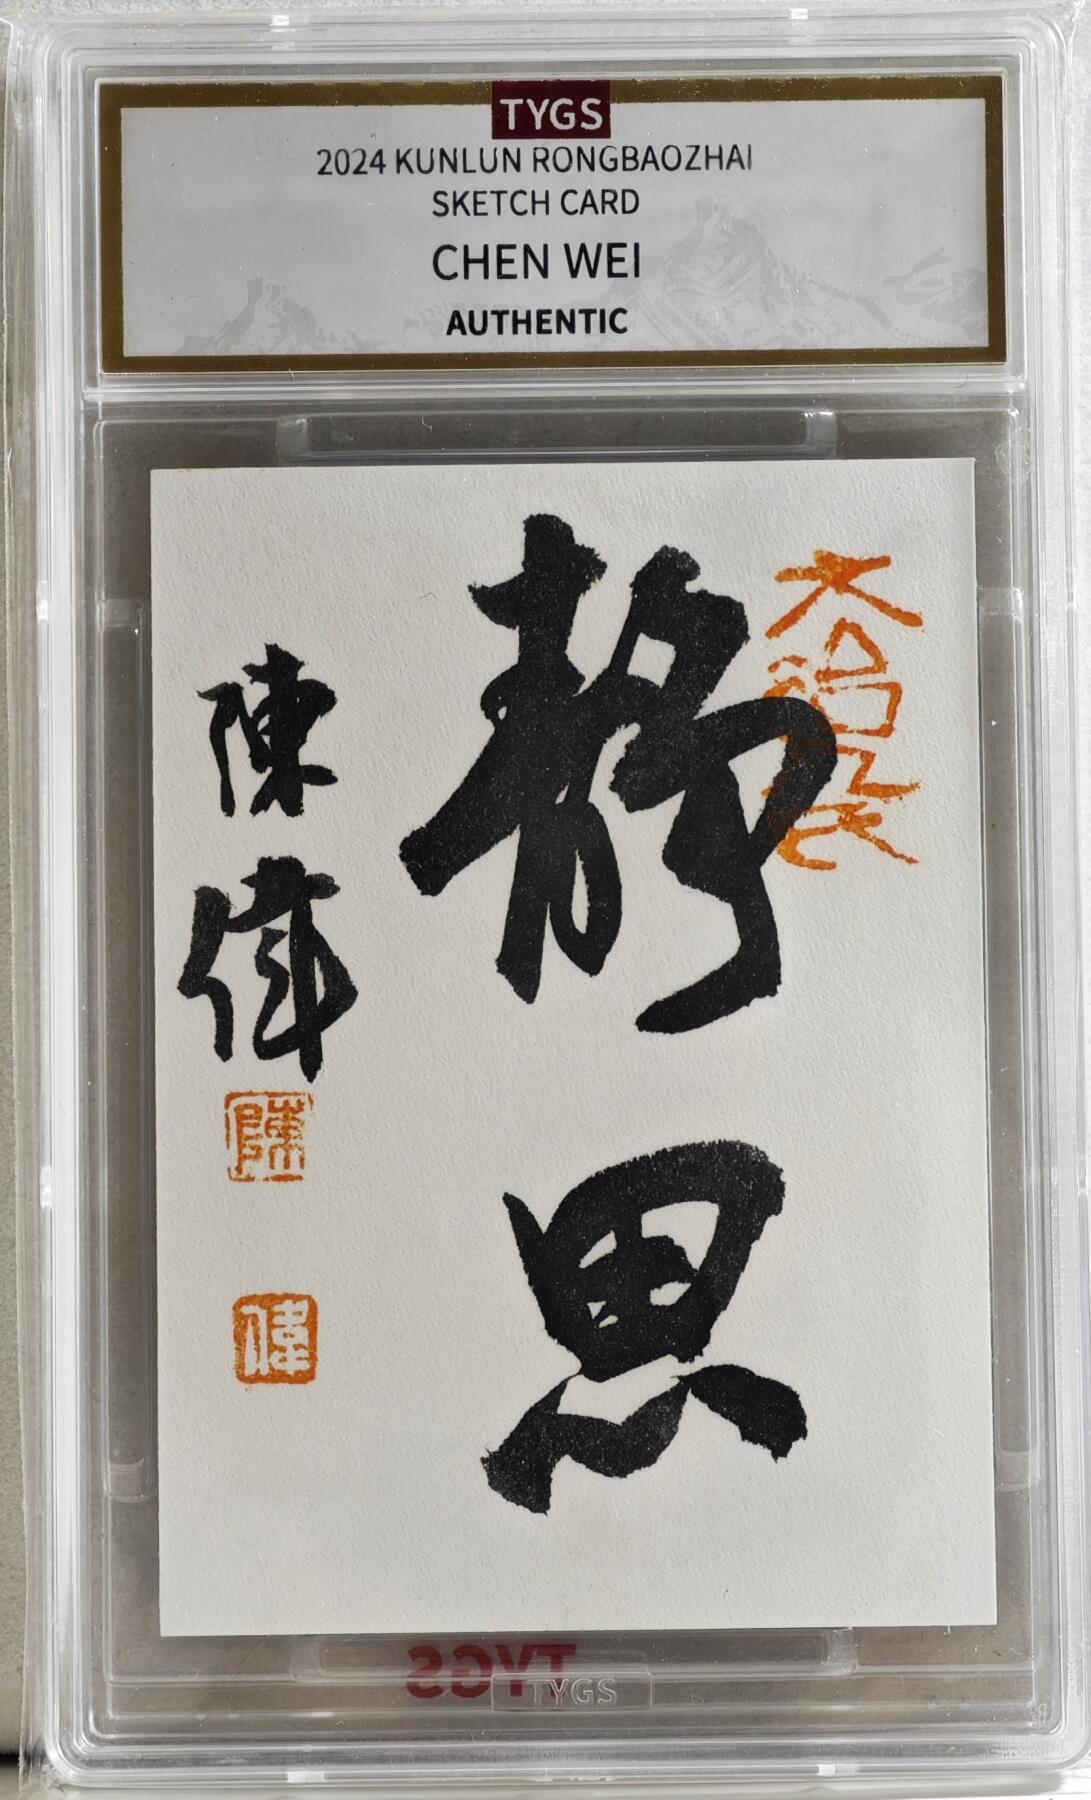 TYGS
2024 KUNLUN RONGBAOZHAI
SKETCH CARD
CHEN WEI
AUTHENTIC
靜思
陳偉
陳
偉
TYGS
TYGS